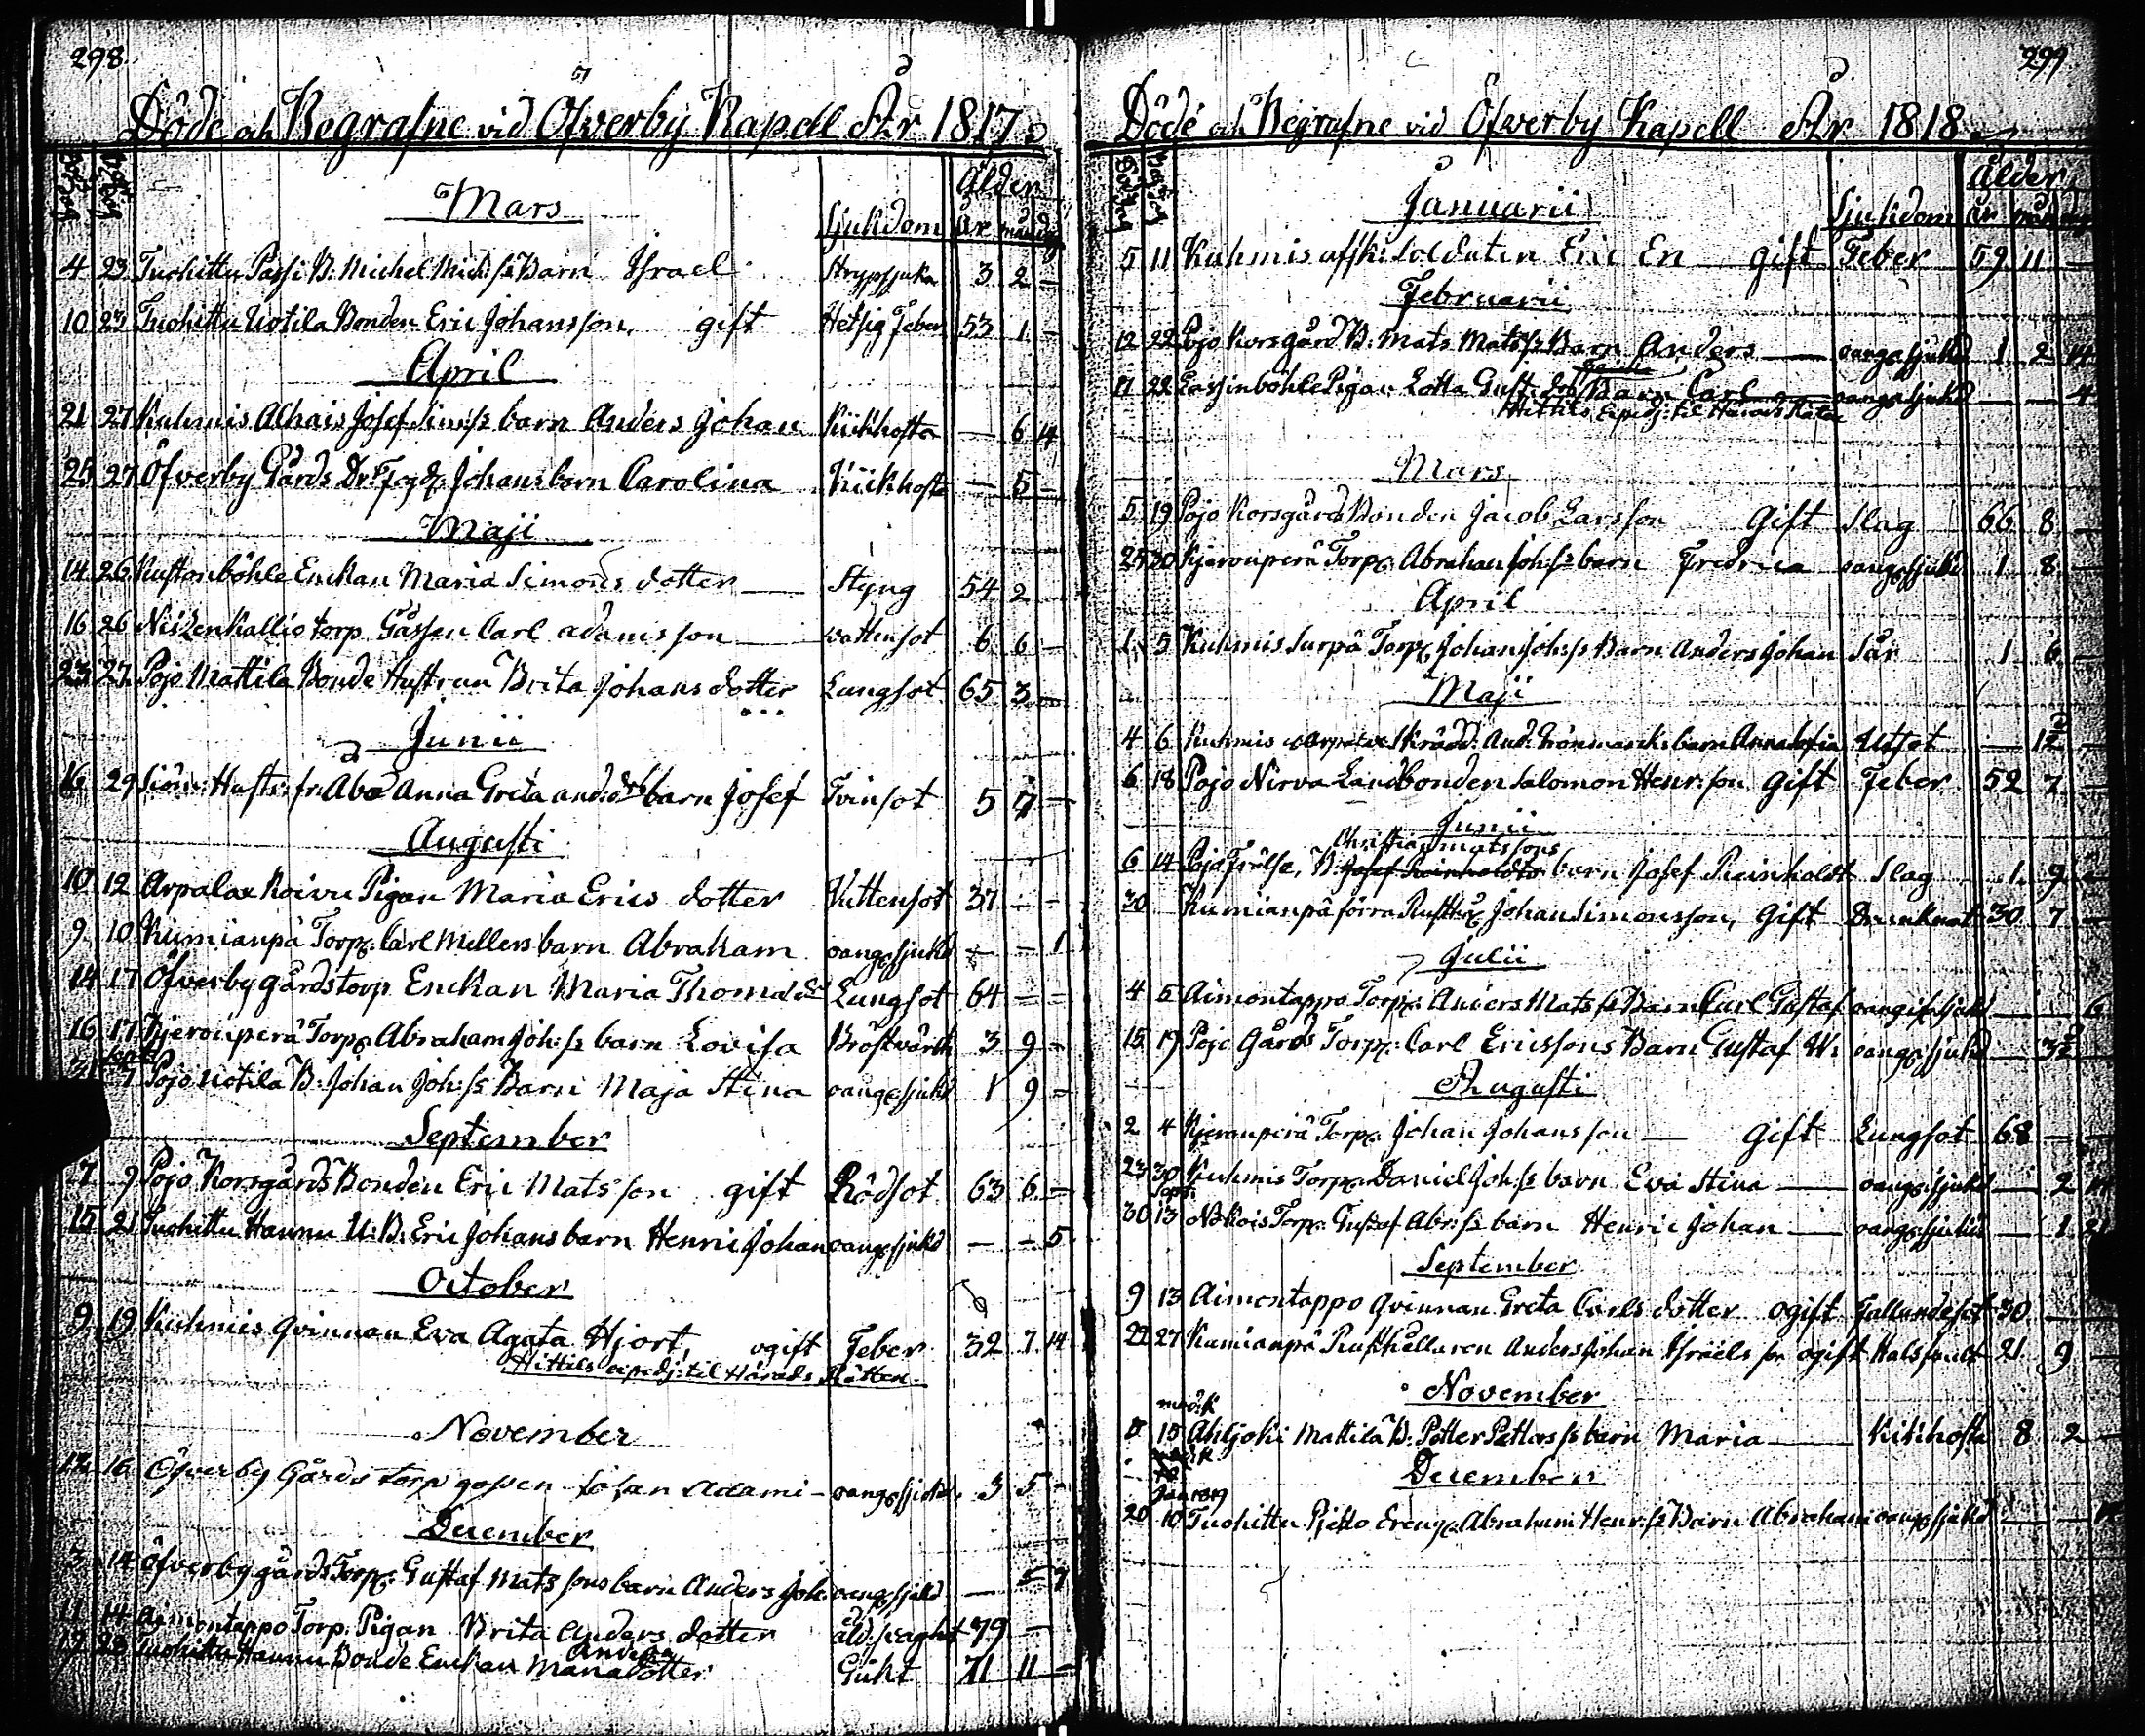 298
Döde och Begrafne vid Öfverby Kapell År 1817
Mars
Ålder
Sjukdom år månd
4 23 Tuohittu Passi B: Michel Mich:ss Barn Israel Strypsjuka 3 2 –
10 23 Tuohittu Uotila Bonden Eric Johansson, gift Hetsig Feber 53 1 –
April
21 27 Kuhmis Alhais Josef Sim:ss barn Anders Johan Kikhosta – 6 14
25 27 Öfverby Gårds Johans barn Carolina Kikhosta – 5 –
Maji
14 26 Kustonböhle Enckan Maria Simons dotter Styng 54 2 –
16 26 Niszenkallio torp Gåssen Carl Adamsson wattusot 6 6 –
23 27 Pojo Mattila Bonde Hustrun Brita Johans dotter Lungsot 65 3 –
Junii
16 29 Hustr: fr: Åbo Anna Greta And:dr barn Josef Tvinsot 5 7 –
Augusti
10 12 Arpalax Koivu Pigan Maria Erics dotter Vattensot 37 – –
9 10 Kumianpä Torp: Carl Mellers barn Abraham oang:sjukd – – 1
14 17 Öfverby gårds torp Enckan Maria Thomæ dr Lungsot 64 – –
16 17 Kjerouperä Torp: Abraham Joh:ss barn Lovisa Bröstvärk 3 9 –
31 Sept 7 Pojo Uotila B: Johan Joh:ss Barn Maja Stina oang:sjukd 1 9 –
September
7 9 Pojo Korsgårds Bonden Eric Matsson gift Rödsot 63 6 –
15 21 Tuohittu Hannu U:B: Eric Johans barn Henric Johan oang:sjukd – – 5
October
9 19 Kuhmis Qvinnan Eva Agata Hjort, ogift Feber 32 7 14
Hittils exped: til Härads Rätten
November
12 16 Öfverby Gårds torp gossen Johan Adami – oang:sjukd. 3 5 –
December
3 14 Öfverby gårds Torp: Gustaf Mats sons barn Anders Joh: oang:sjukd – – 7
11 14 Aimontappo Torp: Pigan Brita Anders dotter åld:svaghet 79 –
Anders
Tuohittu Hannu Bonde Enckan Maria dotter Gikt 71 11 –
299
Döde och Begrafne vid Öfwerby Kapell År 1818
Januarii
Ålder
Sjukdom år mån
5 11 Kuhmis afsk: Soldaten Eric En gift Feber 59 11 –
Februarii
12 22 Pojo Korsgård B: Mats Mats:ss Barn Anders oang:sjukd 1 2 14
17 22 Lassinböhle Pigan Lotta Gust: dr: Barn Carl oang:sjukd – – 4
Hittils Exped: til Härads Rätten
Mars
5 19 Pojo Korsgårds Bonden Jacob Larsson Gift Slag 66 8 –
25 30 Kjerouperä Torp: Abraham Joh:ss barn Fredrica oang:sjukd 1 8 –
April
1 5 Kuhmis Surpä Torp: Johan Joh:ss Barn Anders Johan Sår 1 6 –
Maji
4 6 Kuhmis Skrädd: And: Grönmarcks barn Anna Sofia Utsot – 1½ –
6 18 Pojo Nirva Landbonden Salomon Henr:son Gift Feber 52 7 –
Junii
Christian Matssons
6 14 Pojo Frälse, B: Josef Reinholdts barn Josef Reinholdt Slag 1 9 –
30 Kumianpä förra Rusth: Johan Simonsson, Gift Drunknat 30 7 –
Julii
4 5 Aimontappo Torp: Anders Mats:ss Barn Carl Gustaf oangif:sjukd – – 6
15 19 Pojo Gårds Torp: Carl Ericssons Barn Gustaf W: oang:sjukd 3½
Augusti
2 4 Kjerouperä Torp: Johan Johansson – Gift Lungsot 68 – –
23 30 Kuhmis Torp: Daniel Joh:ss barn Eva Stina oang:sjukd – 2 14
Sept:
30 13 Torp: Gustaf Abr:ss barn Henric Johan oang:sjukd – 1 21
September
9 13 Aimontappo Qvinnan Greta Carls dotter ogift Fallandesot 30
22 27 Kumianpä Rusthållaren Anders Johan Israels so: ogift Halsfeult 21 9 –
November
8 15 Ahljoki Mattila B: Petter Petters:ss barn Maria Kikhosta 8 2 –
December
Jan 1819
20 10 Tuohittu Pjetto Abraham Henr:ss Barn Abraham oang:sjukd